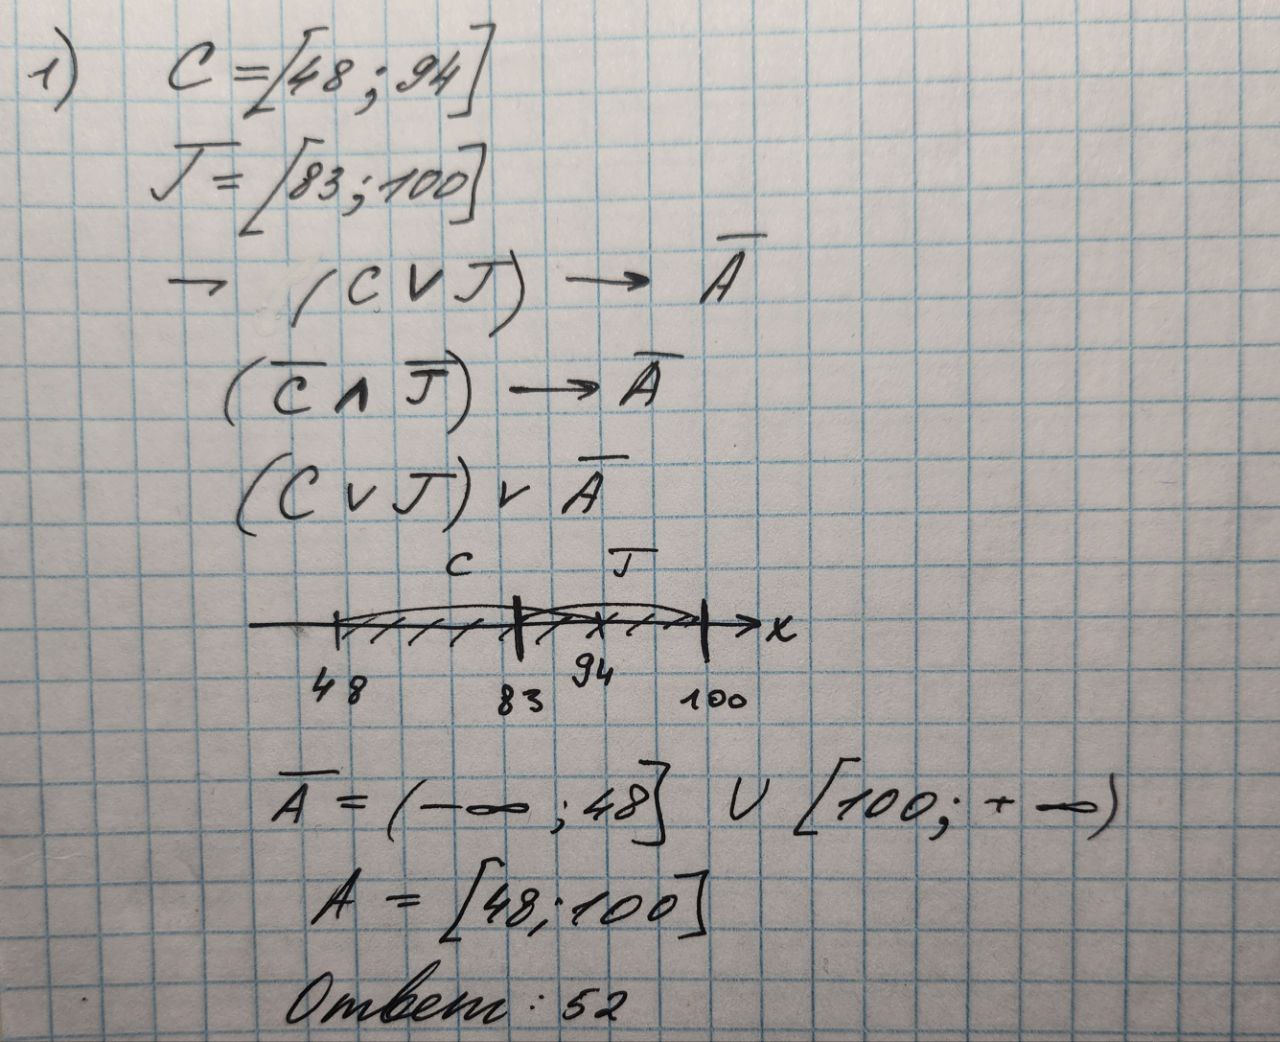 1) C = [48 ; 94]
J̅ = [83 ; 100]
¬ (C ∨ J) → A̅
(C̅ ∧ J̅) → A̅
(C ∨ J) ∨ A̅
C J̅
x
48 83 94 100
A̅ = (-∞ ; 48] ∪ [100; +∞)
A = [48; 100]
Ответ: 52